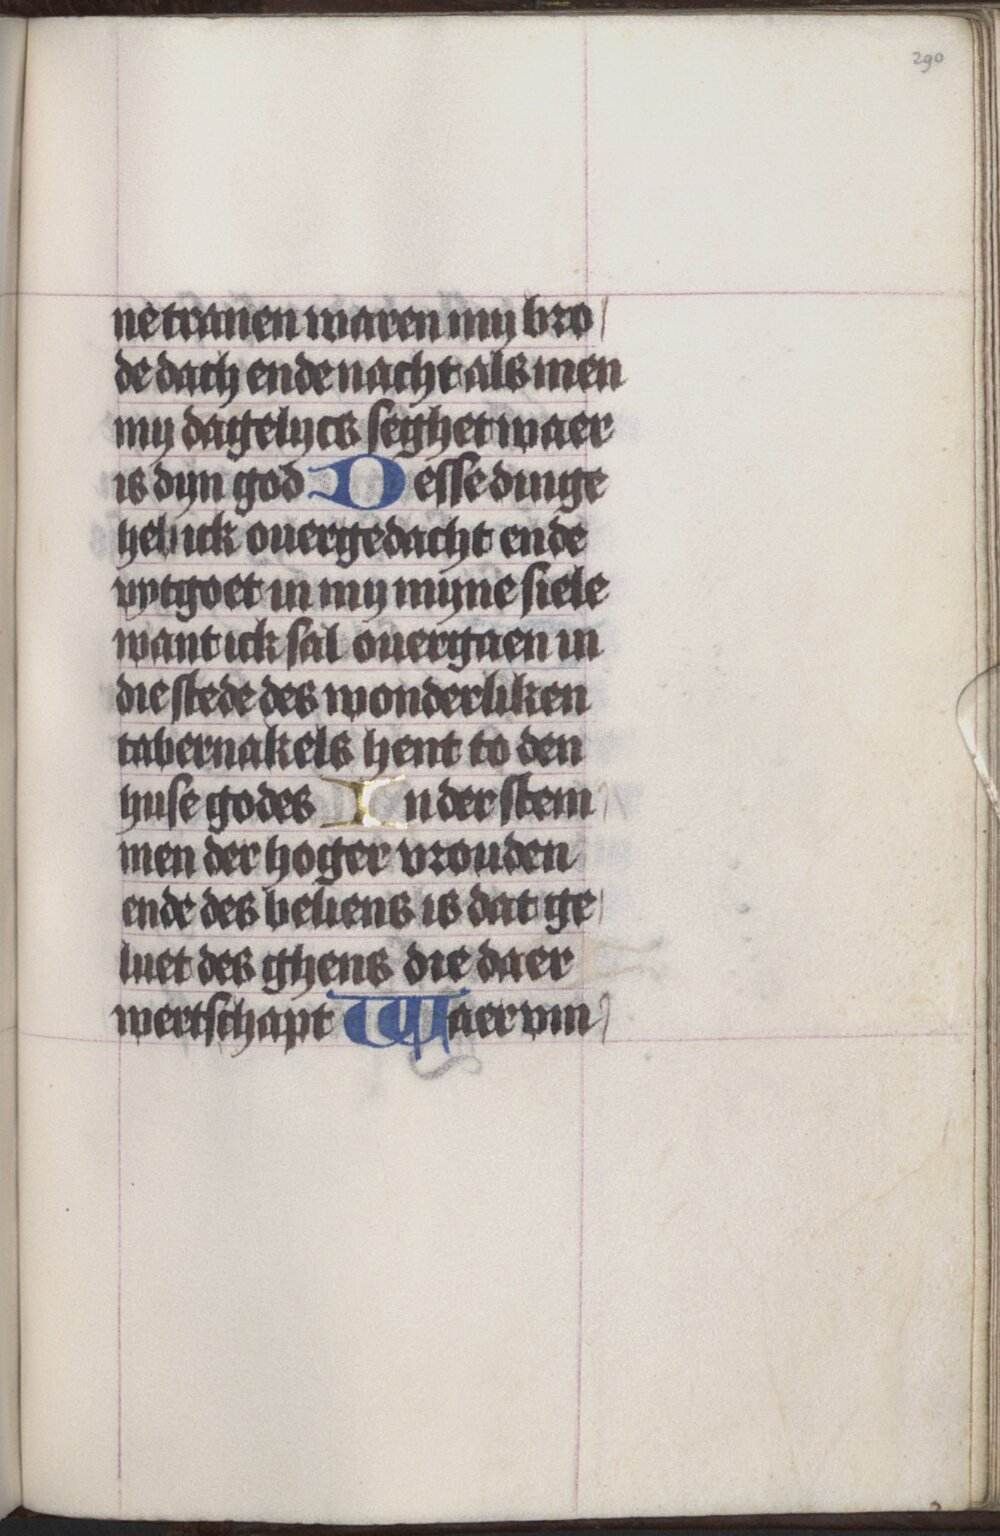 290
ne tranen waren my bro
de dach ende nacht als men
my dagelycs seghet waer
is dyn god Desse dinge
heb ick ouergedacht ende
vytgoet in my myne siele
want ick sal ouergaen in
die stede des wonderliken
tabernakels hent to den
huse godes In der stem
men der hoger vrouden
ende des beliens is dat ge
luet des ghens die daer
wertschapt Waer vm